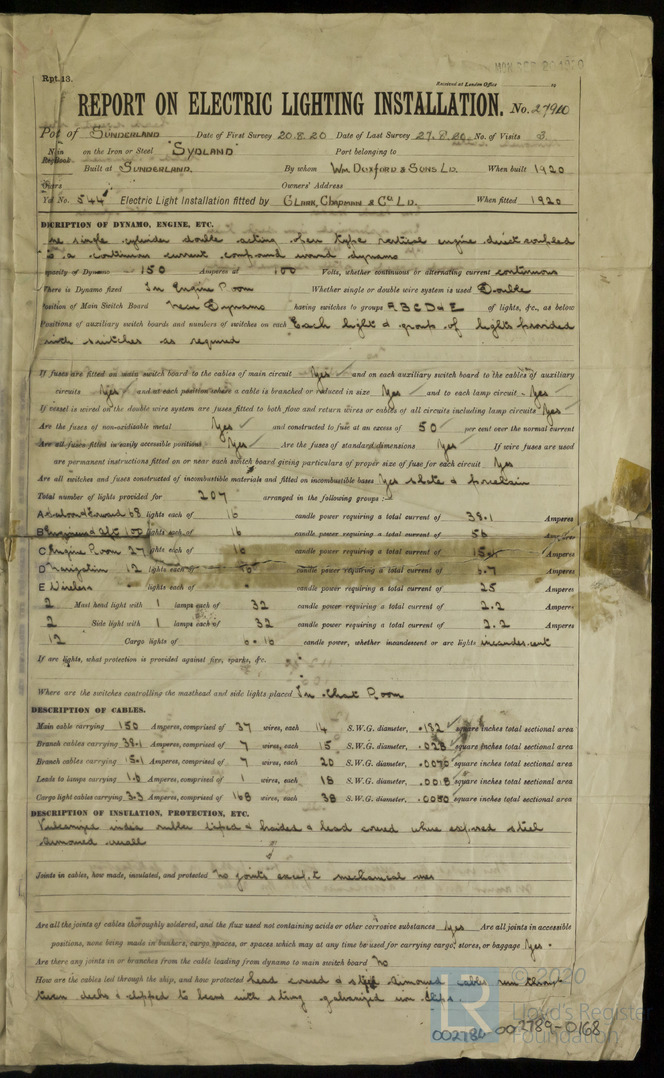 Rpt. 13.
Received at London Office
REPORT ON ELECTRIC LIGHTING INSTALLATION. No. 27920
Port of SUNDERLAND Date of First Survey 20.8.20 Date of Last Survey 27.8.20 No. of Visits 3
on the Iron or Steel "SYDLAND" Port belonging to
Built at SUNDERLAND. By whom WM DOXFORD & SONS LD. When built 1920
Owners Owners' Address
Yard No. 544 Electric Light Installation fitted by CLARK, CHAPMAN & CO LD. When fitted 1920
DESCRIPTION OF DYNAMO, ENGINE, ETC.
One single cylinder double acting open type vertical engine direct coupled
to a continuous current compound wound dynamo
Capacity of Dynamo 150 Amperes at 100 Volts, whether continuous or alternating current continuous
Where is Dynamo fixed In Engine Room Whether single or double wire system is used Double
Position of Main Switch Board near Dynamo having switches to groups A B C D & E of lights, &c., as below
Positions of auxiliary switch boards and numbers of switches on each Each light & group of lights provided
with switches as required
If fuses are fitted on main switch board to the cables of main circuit Yes and on each auxiliary switch board to the cables of auxiliary
circuits Yes and at each position where a cable is branched or reduced in size Yes and to each lamp circuit Yes
If vessel is wired on the double wire system are fuses fitted to both flow and return wires or cables of all circuits including lamp circuits Yes
Are the fuses of non-oxidisable metal Yes and constructed to fuse at an excess of 50 per cent over the normal current
Are all fuses fitted in easily accessible positions Yes Are the fuses of standard dimensions Yes If wire fuses are used
are permanent instructions fitted on or near each switch board giving particulars of proper size of fuse for each circuit Yes
Are all switches and fuses constructed of incombustible materials and fitted on incombustible bases Yes slate & porcelain
Total number of lights provided for 207 arranged in the following groups :—
A Saloon & Forward 68 lights each of 16 candle power requiring a total current of 38.1 Amperes
B Engineers & Aft 100 lights each of 16 candle power requiring a total current of 56 Amperes
C Engine Room 27 lights each of 16 candle power requiring a total current of 15.1 Amperes
D Navigation 12 lights each of candle power requiring a total current of 6.7 Amperes
E Wireless lights each of candle power requiring a total current of 25 Amperes
2 Mast head light with 1 lamps each of 32 candle power requiring a total current of 2.2 Amperes
2 Side light with 1 lamps each of 32 candle power requiring a total current of 2.2 Amperes
12 Cargo lights of 6.16 candle power, whether incandescent or arc lights incandescent
If arc lights, what protection is provided against fire, sparks, &c.
Where are the switches controlling the masthead and side lights placed In Chart Room
DESCRIPTION OF CABLES.
Main cable carrying 150 Amperes, comprised of 37 wires, each 14 S.W.G. diameter, .182 square inches total sectional area
Branch cables carrying 38.1 Amperes, comprised of 7 wires, each 15 S.W.G. diameter, .028 square inches total sectional area
Branch cables carrying 15.1 Amperes, comprised of 7 wires, each 20 S.W.G. diameter, .0070 square inches total sectional area
Leads to lamps carrying 1.6 Amperes, comprised of 1 wires, each 18 S.W.G. diameter, .0018 square inches total sectional area
Cargo light cables carrying 3.3 Amperes, comprised of 168 wires, each 38 S.W.G. diameter, .0050 square inches total sectional area
DESCRIPTION OF INSULATION, PROTECTION, ETC.
Vulcanized india rubber taped & braided & lead covered where exposed steel
armoured overall
Joints in cables, how made, insulated, and protected No joints except mechanical ones
Are all the joints of cables thoroughly soldered, and the flux used not containing acids or other corrosive substances Yes Are all joints in accessible
positions, none being made in bunkers, cargo spaces, or spaces which may at any time be used for carrying cargo, stores, or baggage Yes.
Are there any joints in or branches from the cable leading from dynamo to main switch board No
How are the cables led through the ship, and how protected lead covered & steel armoured cables run through
tween decks & clipped to beams with strong galvanized iron clips.
© 2020
Lloyd's Register
Foundation
002784-002789-0168